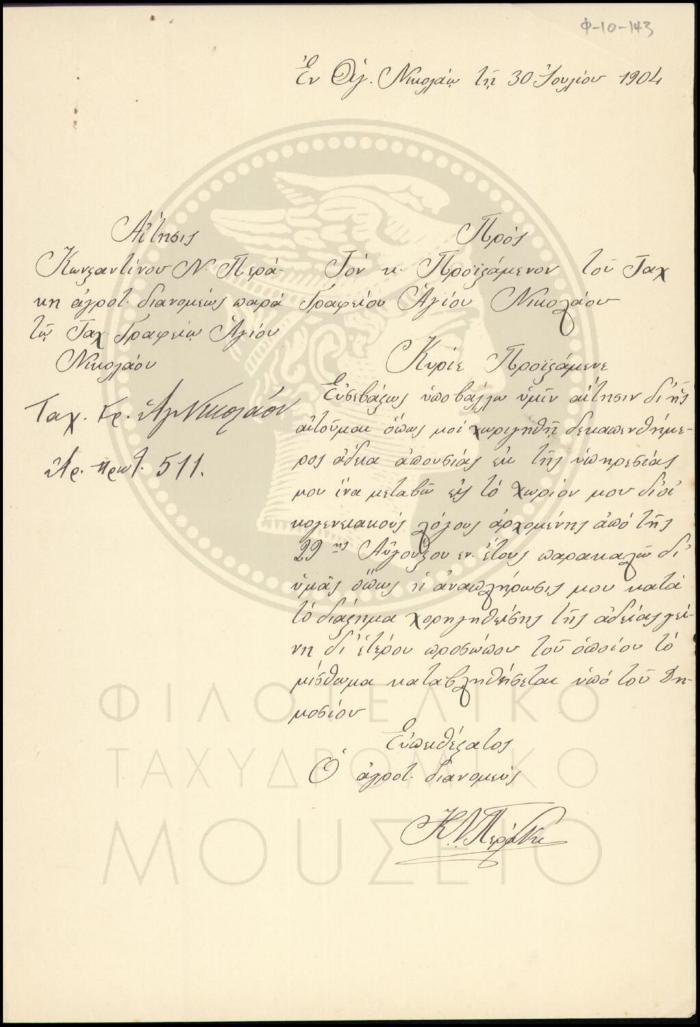 Φ-10-143
Ἐν Ἁγ. Νικολάῳ τῇ 30 Ἰουλίου 1904
Αἴτησις
Κωνσταντίνου Ν. Περά-
κη ἀγροτ. διανομέως παρά
τῷ Ταχ Γραφείῳ Ἁγίου
Νικολάου
Ταχ. Γρ. Ἁγ Νικολάου
Ἀρ. πρωτ. 511.
Πρός
Τόν κ. Προϊστάμενον τοῦ Ταχ
Γραφείου Ἁγίου Νικολάου
Κύριε Προϊστάμενε
Εὐσεβάστως ὑποβάλλω ὑμῖν αἴτησιν δι' ἧς
αἰτοῦμαι ὅπως μοί χωριγηθῇ δεκαπενθήμε-
ρος ἄδεια ἀπουσίας ἐκ τῆς ὑπηρεσίας
μου ἵνα μεταβῶ εἰς τό χωρίον μου δι' οἰ
κογενειακούς λόγους ἀρχομένης ἀπό τῆς
29ης Αὐγούστου ἐν. ἔτους παρακαλῶ δι
ὑμᾶς ὅπως ἡ ἀναπλήρωσις μου κατά
τό διάστημα χορηγηθείσης τῆς ἀδείας γεί-
νῃ δι' ἑτέρου προσώπου τοῦ ὁποίου τό
μίσθωμα καταβληθήσεται ὑπό τοῦ Δη-
μοσίου
Εὐπειθέστατος
Ὁ ἀγροτ. διανομεύς
Κ. Ν. Περάκης
ΦΙΛΟΤΕΛΙΚΟ
ΤΑΧΥΔΡΟΜΙΚΟ
ΜΟΥΣΕΙΟ